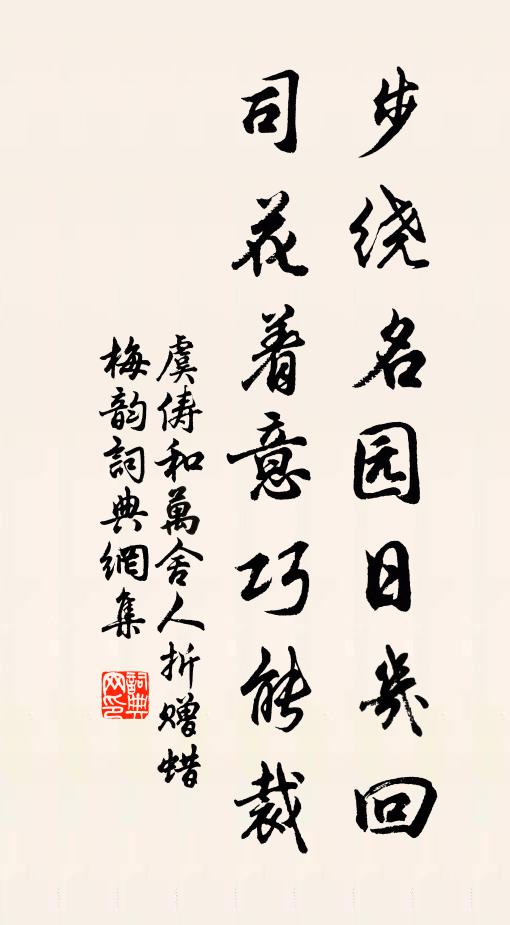 步绕名园日幾回
司花着意巧能裁
虞俦和萬舍人折赠蜡
梅韵詞典網集
詞典网印